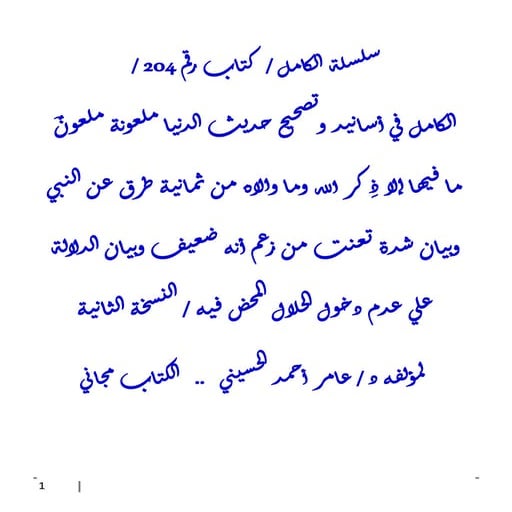 سلسلة الكامل / كتاب رقم 204 /
الكامل في أسانيد و تصحيح حديث الدنيا ملعونة ملعونٌ
ما فيها إلا ذِكر الله وما والاه من ثمانية طرق عن النبي
وبيان شدة تعنت من زعم أنه ضعيف وبيان الدلالة
علي عدم دخول الحلال المحض فيه / النسخة الثانية
لمؤلفه د / عامر أحمد الحسيني .. الكتاب مجاني
1 |